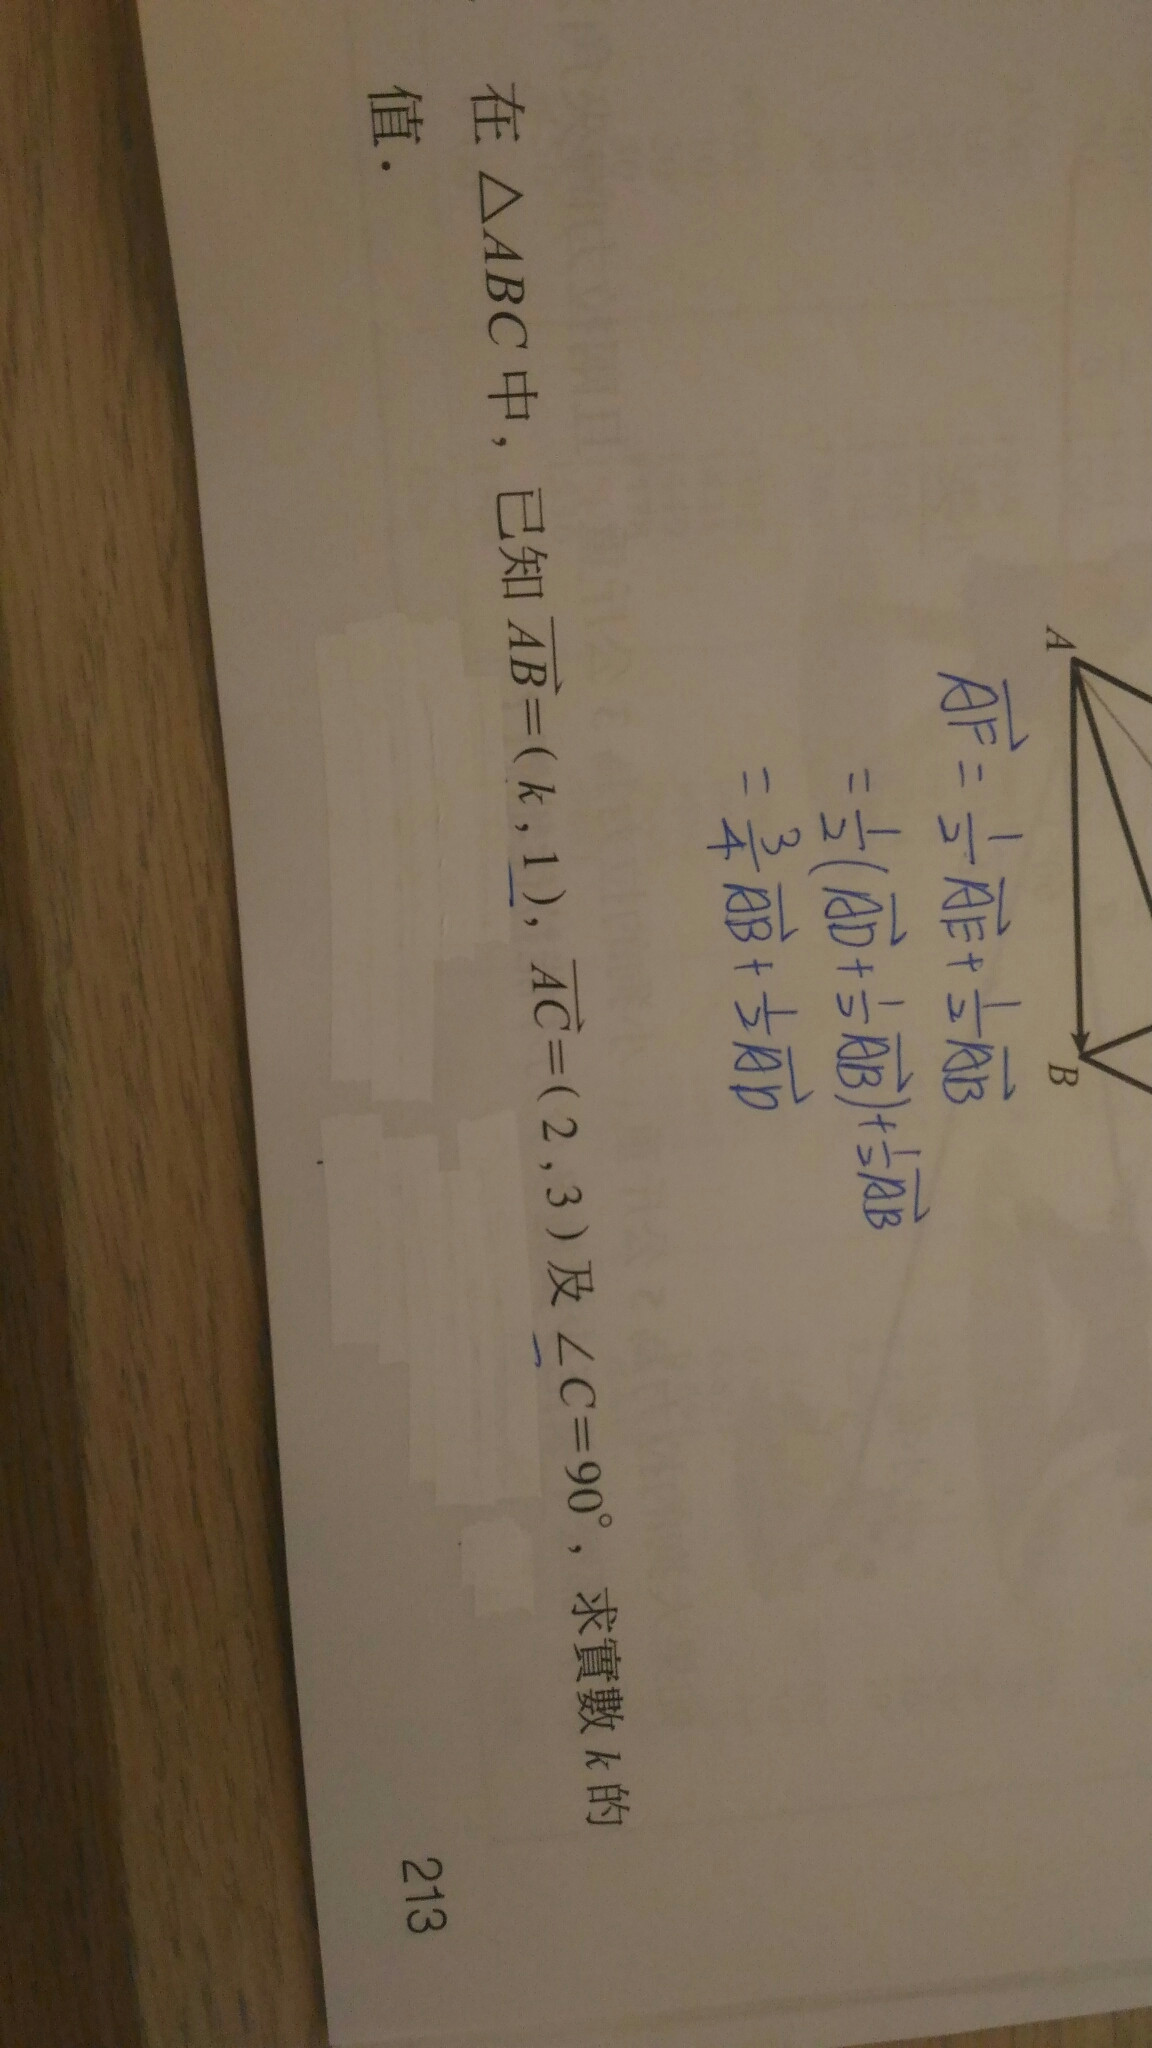 A
B
$\overrightarrow{AF} = \frac{1}{2}\overrightarrow{AE} + \frac{1}{2}\overrightarrow{AB}$
$= \frac{1}{2}(\overrightarrow{AD} + \frac{1}{2}\overrightarrow{AB}) + \frac{1}{2}\overrightarrow{AB}$
$= \frac{3}{4}\overrightarrow{AB} + \frac{1}{2}\overrightarrow{AD}$
在 △ABC 中，已知 $\overrightarrow{AB}$=(k,1)，$\overrightarrow{AC}$=(2,3)及 ∠C=90°，求實數 k 的
值．
213